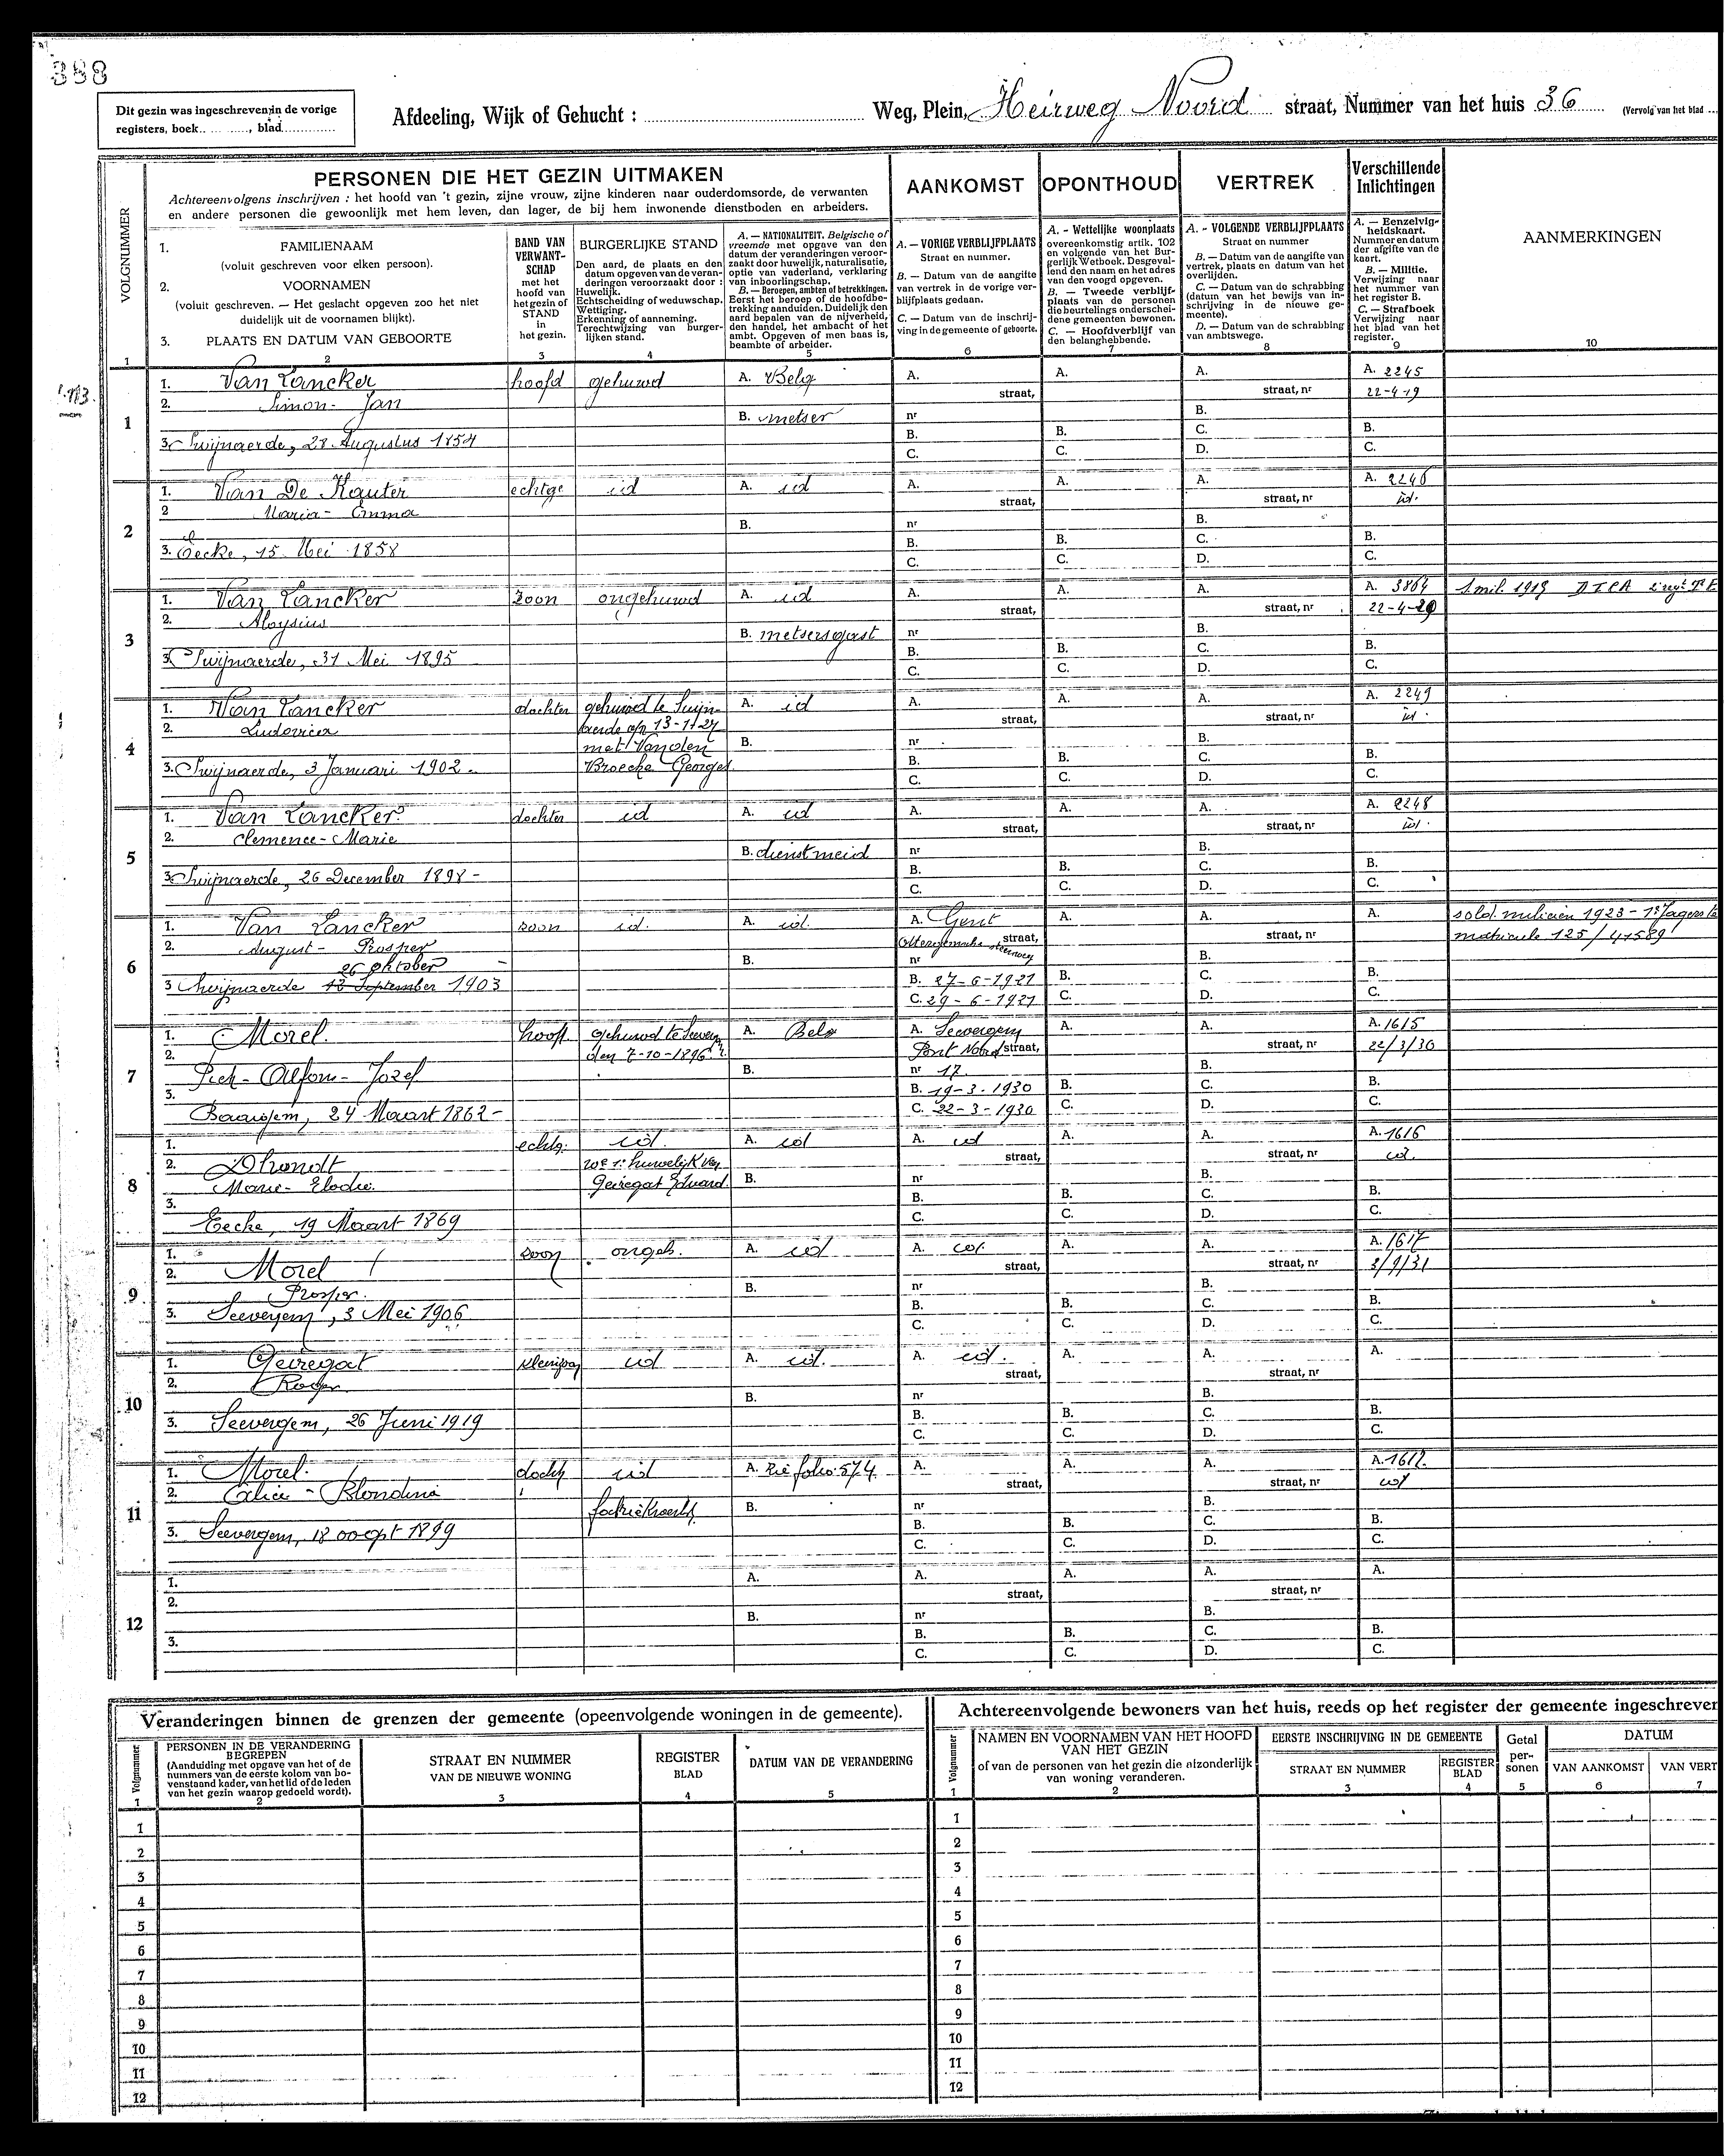 388
Dit gezin was ingeschreven in de vorige
registers, boek.. ........, blad..............
Afdeeling, Wijk of Gehucht :
Weg, Plein, Heirweg Noord straat, Nummer van het huis 36 (Vervolg van het blad ...
VOLGNUMMER
PERSONEN DIE HET GEZIN UITMAKEN
Achtereenvolgens inschrijven : het hoofd van 't gezin, zijne vrouw, zijne kinderen naar ouderdomsorde, de verwanten
en andere personen die gewoonlijk met hem leven, dan lager, de bij hem inwonende dienstboden en arbeiders.
AANKOMST
OPONTHOUD
VERTREK
Verschillende
Inlichtingen
1. FAMILIENAAM
(voluit geschreven voor elken persoon).
2. VOORNAMEN
(voluit geschreven. — Het geslacht opgeven zoo het niet
duidelijk uit de voornamen blijkt).
3. PLAATS EN DATUM VAN GEBOORTE
BAND VAN
VERWANT-
SCHAP
met het
hoofd van
het gezin of
STAND
in
het gezin.
BURGERLIJKE STAND
Den aard, de plaats en den
datum opgeven van de veran-
deringen veroorzaakt door :
Huwelijk.
Echtscheiding of weduwschap.
Wettiging.
Erkenning of aanneming.
Terechtwijzing van burger-
lijken stand.
A. — NATIONALITEIT. Belgische of
vreemde met opgave van den
datum der veranderingen veroor-
zaakt door huwelijk, naturalisatie,
optie van vaderland, verklaring
van inboorlingschap.
B. — Beroepen, ambten of betrekkingen.
Eerst het beroep of de hoofdbe-
trekking aanduiden. Duidelijk den
aard bepalen van de nijverheid,
den handel, het ambacht of het
ambt. Opgeven of men baas is,
beambte of arbeider.
A. — VORIGE VERBLIJFPLAATS
Straat en nummer.
B. — Datum van de aangifte
van vertrek in de vorige ver-
blijfplaats gedaan.
C. — Datum van de inschrij-
ving in de gemeente of geboorte.
A. - Wettelijke woonplaats
overeenkomstig artik. 102
en volgende van het Bur-
gerlijk Wetboek. Desgeval-
lend den naam en het adres
van den voogd opgeven.
B. — Tweede verblijf-
plaats van de personen
die beurtelings onderschei-
dene gemeenten bewonen.
C. — Hoofdverblijf van
den belanghebbende.
A. - VOLGENDE VERBLIJFPLAATS
Straat en nummer
B. — Datum van de aangifte van
vertrek, plaats en datum van het
overlijden.
C. — Datum van de schrabbing
(datum van het bewijs van in-
schrijving in de nieuwe ge-
meente).
D. — Datum van de schrabbing
van ambtswege.
A. — Eenzelvig-
heidskaart.
Nummer en datum
der afgifte van de
kaart.
B. — Militie.
Verwijzing naar
het nummer van
het register B.
C. — Strafboek
Verwijzing naar
het blad van het
register.
AANMERKINGEN
1 2 3 4 5 6 7 8 9 10
1
1. Van Lancker hoofd gehuwd A. Belg A. straat, A. A. straat, nr A. 2245
2. Simon - Jan B. metser nr B. 22-4-19
3. Swijnaerde, 28 Augustus 1854 B. C. B. C. C. D. B. C.
2
1. Van De Kauter echtge id A. id A. straat, A. A. straat, nr A. 2246
2 Maria - Emma B. nr B. id.
3. Eecke, 15 Mei 1858 B. C. B. C. C. D. B. C.
3
1. Van Lancker zoon ongehuwd A. id A. straat, A. A. straat, nr A. 3864 1 mil. 1919
2. Aloysius B. metsersgast nr B. 22-4-20
3. Swijnaerde, 31 Mei 1895 B. C. B. C. C. D. B. C.
4
1. Van Lancker dochter gehuwd te Swijn- A. id A. straat, A. A. straat, nr A. 2249
2. Ludovica aerde op 13-1-27 id.
met Vanden B. nr B.
3. Swijnaerde, 3 Januari 1902 - Broecke Georges B. C. B. C. C. D. B. C.
5
1. Van Lancker dochter id A. id A. straat, A. A. straat, nr A. 2248
2. Clemence - Marie B. dienstmeid nr B. id.
3. Swijnaerde, 26 December 1898 - B. C. B. C. C. D. B. C.
6
1. Van Lancker zoon id. A. id. A. Gent A. A. A. sold. milicien 1923 - 1e Jagers te
2. August - Prosper straat, straat, nr matricule 125/41589
26 oktober B. nr B.
3 Swijnaerde 13 September 1903 B. 27-6-1921 B. C. B.
C. 29-6-1921 C. D. C.
7
1. Morel. hoofd gehuwd te Seeverg. A. Belg A. Seevergem A. A. A. 1615
2. den 7-10-1896 Pont Noord straat, straat, nr 22/3/30
Piet - Alfons - Jozef B. nr 17. B.
3. B. 19-3-1930 B. C. B.
Baaigem, 24 Maart 1862 - C. 22-3-1930 C. D. C.
8
1. echtg. id. A. id A. id A. A. A. 1616
2. Dhondt we 1e huwelijk van straat, straat, nr id.
Marie - Elodie. Geiregat Eduard. B. nr B.
3. B. B. C. B.
Eecke, 19 Maart 1869 C. C. D. C.
9
1. zoon ongeh. A. id A. id. A. A. A. 1617
2. Morel straat, straat, nr 3/9/31
Prosper. B. nr B.
3. Seevergem, 3 Mei 1906 B. C. B. C. C. D. B. C.
10
1. Geiregat kleinzoon id A. id. A. id. A. A. A.
2. Roger straat, straat, nr
B. nr B.
3. Seevergem, 26 Juni 1919 B. C. B. C. C. D. B. C.
11
1. Morel. docht id A. Zie folio 574 A. A. A. A. 1612.
2. Alice - Blondina straat, straat, nr id
B. nr B.
3. Seevergem, 18 oogst 1899 B. C. B. C. C. D. B. C.
12
1. A. A. A. A. A.
2. straat, straat, nr
B. nr B.
3. B. C. B. C. C. D. B. C.
Veranderingen binnen de grenzen der gemeente (opeenvolgende woningen in de gemeente).
Volgnummer
PERSONEN IN DE VERANDERING
BEGREPEN
(Aanduiding met opgave van het of de
nummers van de eerste kolom van bo-
venstaand kader, van het lid of de leden
van het gezin waarop gedoeld wordt).
STRAAT EN NUMMER
VAN DE NIEUWE WONING
REGISTER
BLAD
DATUM VAN DE VERANDERING
1 2 3 4 5
1
2
3
4
5
6
7
8
9
10
11
12
Achtereenvolgende bewoners van het huis, reeds op het register der gemeente ingeschreven
Volgnummer
NAMEN EN VOORNAMEN VAN HET HOOFD
VAN HET GEZIN
of van de personen van het gezin die afzonderlijk
van woning veranderen.
EERSTE INSCHRIJVING IN DE GEMEENTE
STRAAT EN NUMMER
REGISTER
BLAD
Getal
per-
sonen
DATUM
VAN AANKOMST
VAN VERT
1 2 3 4 5 6 7
1
2
3
4
5
6
7
8
9
10
11
12